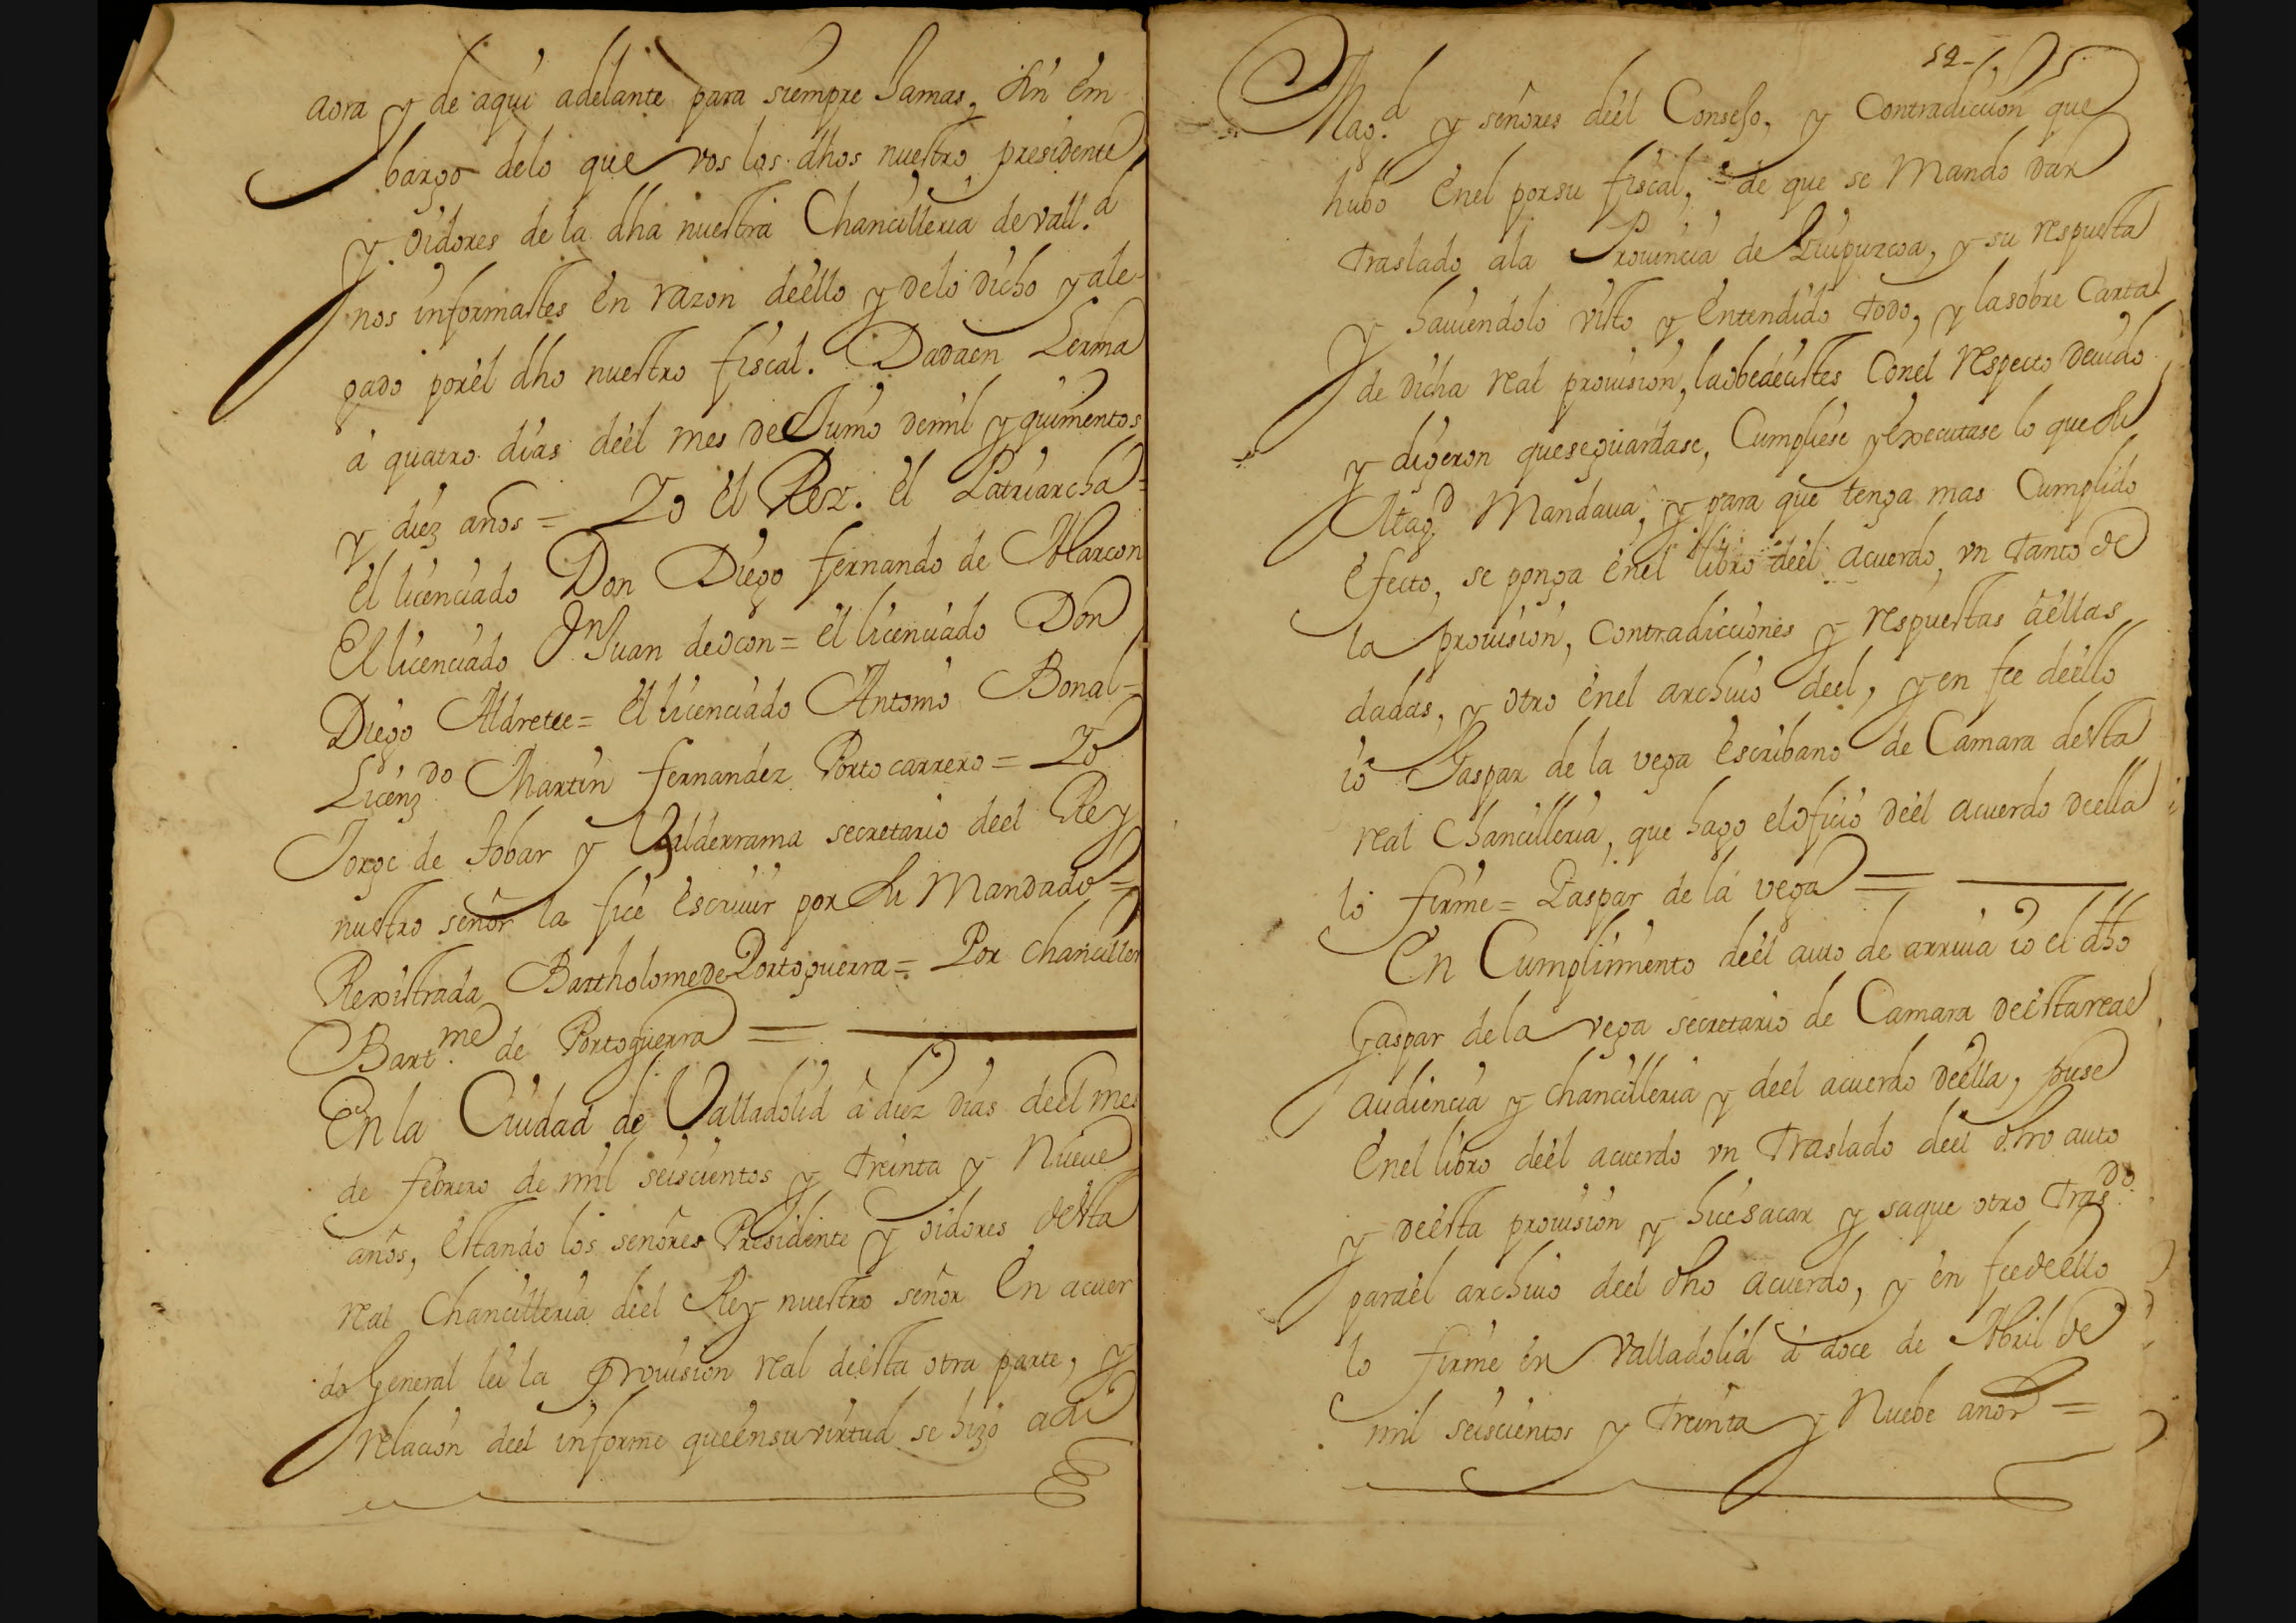 aora y de aqui adelante para siempre Jamas, sin em
bargo delo que vos los dhos nuestro presidente
y oidores de la dha nuestra Chancilleria de Vall.d
nos informastes en razon deello y delo dicho y ale-
gado porel dho nuestro fiscal. Dadaen Lerma
a quatro dias deel mes de Junio demil y quinientos
y diez años = Yo el Rey. el Patriarcha =
el licenciado Don Diego fernando de Alarcon
El licenciado Jn Juan deocon = el licenciado Don
Diego Aldrete = el licenciado Antonio Bonal =
Licenz.do Martin fernandez Portocarrero = Yo
Jorge de tobar y Valderrama secretario deel Rey
nuestro señor la fice escriuir por su Mandado =
Rexistrada Bartholomede Portoguerra = Por chanciller
Bart.me de Portoguerra =
En la Ciudad de Valladolid a diez dias deel mes
de febrero de mil seiscientos y treinta y Nueue
años, estando los señores Presidente y oidores desta
real Chancilleria deel Rey nuestro señor En acuer
do General lei la prouision real deesta otra parte, y
relacion deel informe queensuvirtud se hizo a su
52
Mag.d y señores deel Consejo, y Contradiccion que
hubo enel porsu fiscal, de que se Mando dar
traslado ala Prouincia de Guipuzcoa, y su respuesta
y hauiendolo visto y entendido todo, y lasobre Carta
de dicha real prouision, laobedecistes Conel respecto deuido
y digeron queseguardase, Cumpliese yexecutase lo que su
Mag.d Mandaua, y para que tenga mas Cumplido
efecto, se ponga enel libro deel acuerdo, vn tanto de
la prouision, Contradicciones y respuestas aellas
dadas, y otro enel archiuo deel, y en fee deello
io Gaspar de la vega escribano de Camara desta
real Chancilleria, que hago eloficio deel acuerdo deella
lo firme = Gaspar de la vega =
En Cumplimiento deel auto de arriua io el dho
Gaspar dela vega secretario de Camara deestareal
audiencia y chancilleria y deel acuerdo deella, puse
enel libro deel acuerdo vn traslado deel dho auto
y deesta prouision y hicesacar y saque otro tras.do
parael archiuo deel dho acuerdo, y en feedeello
lo firme en Valladolid a doce de Abril de
mil seiscientos y treinta y Nuebe años =